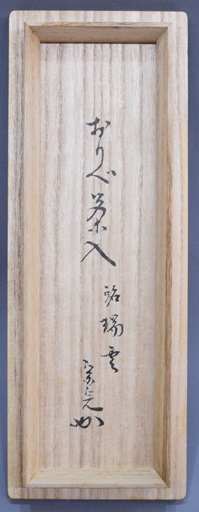 おりべ茶入
銘 瑞雲